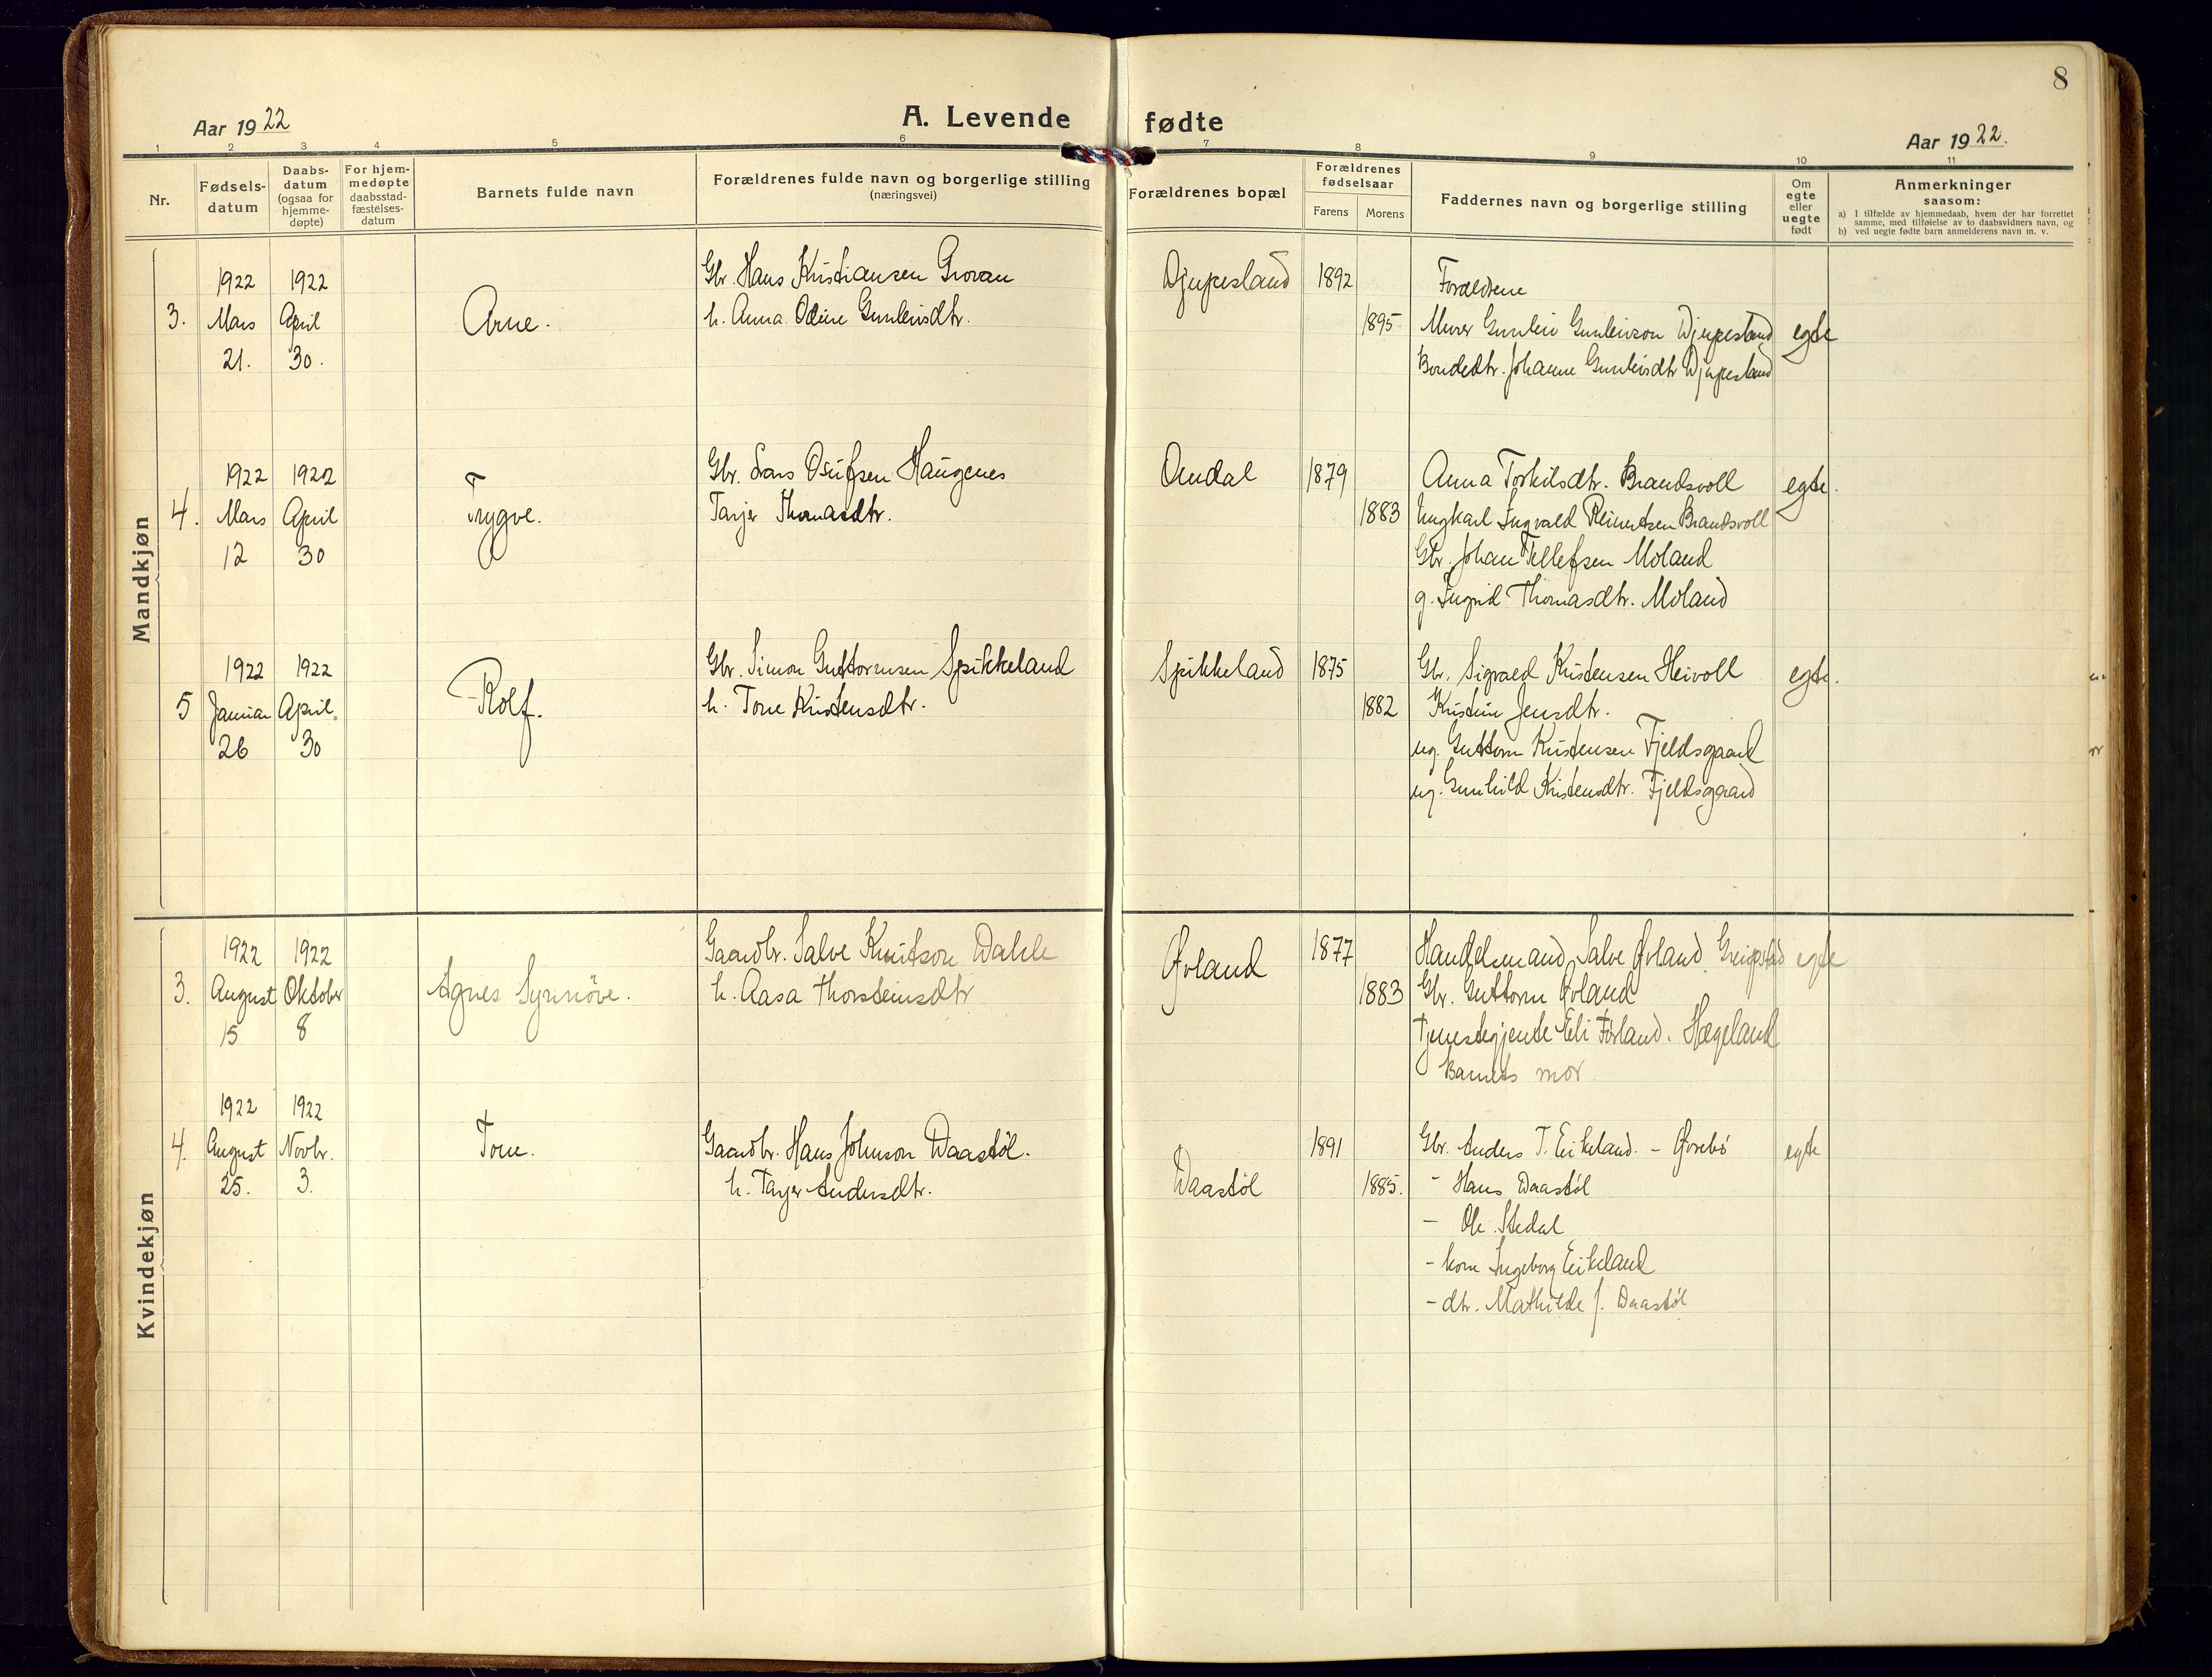 8
Aar 1922
A. Levende fødte
Aar 1922.
1 2 3 4 5 6 7 8 9 10 11
Nr.
Fødsels-
datum
Daabs-
datum
(ogsaa for
hjemme-
døpte)
For hjem-
medøpte
daabsstad-
fæstelses-
datum
Barnets fulde navn
Forældrenes fulde navn og borgerlige stilling
(næringsvei)
Forældrenes bopæl
Forældrenes
fødselsaar
Farens Morens
Faddernes navn og borgerlige stilling
Om
egte
eller
uegte
født
Anmerkninger
saasom:
a) I tilfælde av hjemmedaab, hvem der har forrettet
samme, med tilføielse av to daabsvidners navn, og
b) ved uegte fødte barn anmelderens navn m. v.
Mandkjøn
3.
1922
Mars
21.
1922
April
30.
Arne.
Gbr. Hans Kristiansen Grovan
h. Anna Odine Gunleivsdtr.
Djupesland
1892
1895
Forældrene
Murer Gunleiv Gunleivson Djupesland
Bondedtr. Johanne Gunleivsdtr Djupesland
egte
4.
1922
Mars
12
1922
April
30
Trygve.
Gbr. Lars Osufsen Haugenes
Tarjer Thomasdtr.
Omdal
1879
1883
Anna Torkilsdtr. Brandsvoll
Ungkarl Ingvald Reinertsen Brandsvoll
Gbr. Johan Tellefsen Moland
g. Ingrid Thomasdtr. Moland
egte.
5
1922
Januar
26
1922
April.
30
Rolf.
Gbr. Simon Guttormsen Spikkeland
h. Tone Kristensdtr.
Spikkeland
1875
1882
Gbr. Sigvald Kristensen Heivoll
Kristine Jensdtr.
ug. Guttorm Kristensen Fjeldsgaard
ug. Gunhild Kristensdtr. Fjeldsgaard
egte.
Kvindekjøn
3.
1922
August
15
1922
Oktober
8
Agnes Synnöve.
Gaardbr. Salve Knutson Dahle
h. Aasa Thorsteinsdtr
Øvland
1877
1883
Handelsmand Salve Øvland Greipstad
Gbr. Guttorm Øvland
Tjenestegjente Eli Førland. Hægeland
Barnets mor
egte
4.
1922
August
25.
1922
Novbr.
3.
Tone.
Gaardbr. Hans Johnson Daastöl.
h. Tarjer Andersdtr.
Daastöl
1891
1885.
Gbr. Anders T. Eikeland. - Øvrebö
- Hans Daastöl
- Ole Stedal
- kone Ingeborg Eikeland
- dtr. Mathilde J. Daastöl
egte